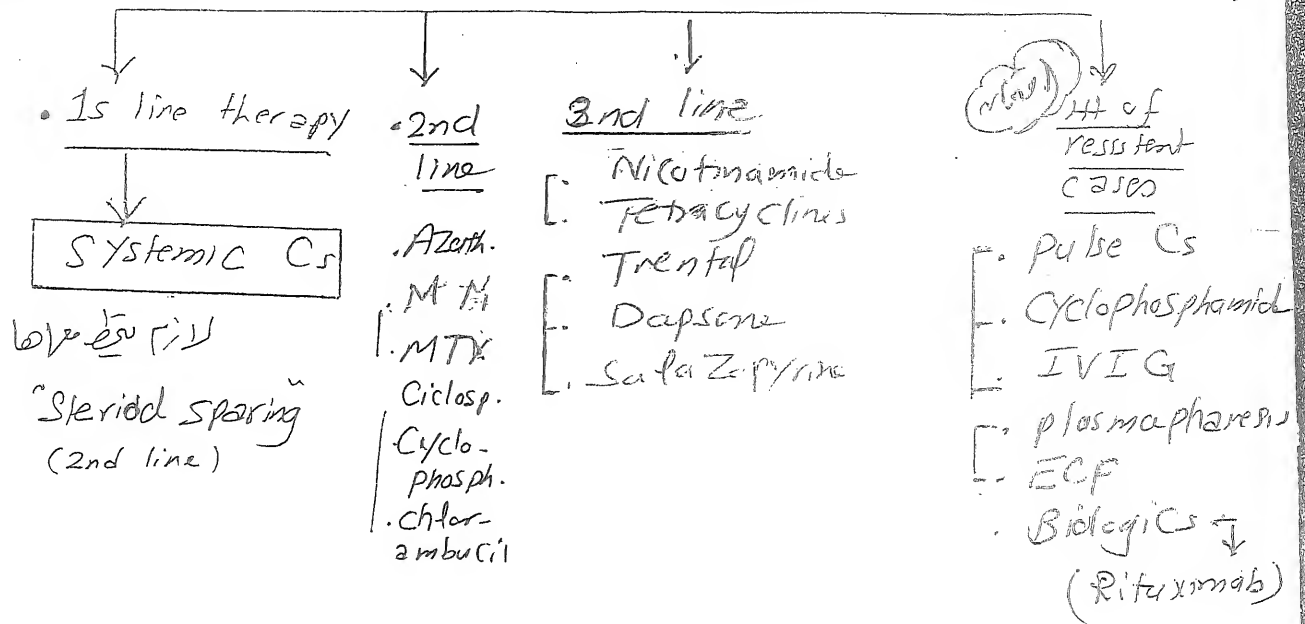 . 1s line therapy
Systemic Cs
لازم يتحط معاها
"Steriod sparing"
(2nd line)
. 2nd
line
. Azath.
. M M
. MTX
Ciclosp.
. Cyclo-
phosph.
. chlor-
ambucil
3nd line
. Nicotinamide
. Tetracyclines
. Trental
. Dapsone
. Salazopyrine
ttt of
resistent
cases
. pulse Cs
. Cyclophosphamid
. IVIG
. plasmapharesis
. ECP
. Biologics
(Rituximab)